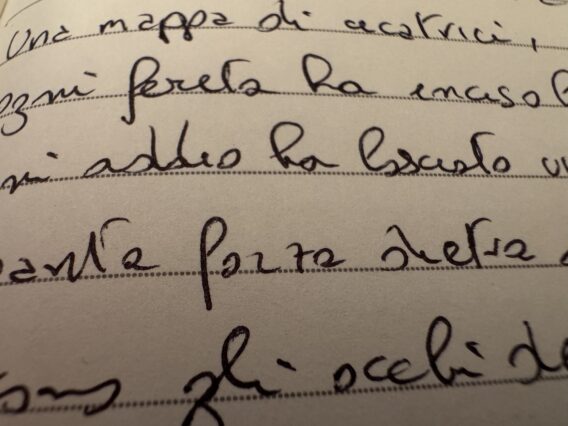 una mappa di cicatrici,
ogni ferita ha inciso
ogni addio ha lasciato un
quanta forza dietro
gli occhi